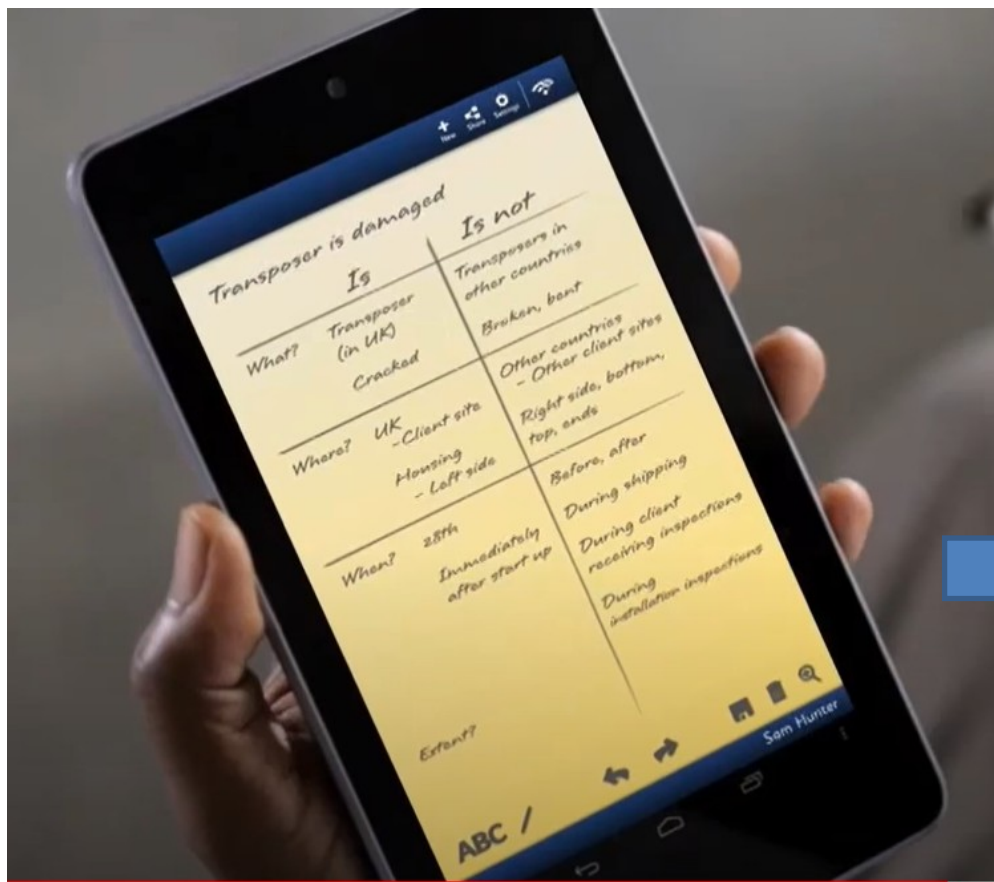 New Share Settings
Transposer is damaged
Is
Is not
What?
Transposer
(in UK)
Cracked
Transposers in
other countries
Broken, bent
Where?
UK
-Client site
Housing
- Left side
Other countries
- Other client sites
Right side, bottom,
top, ends
When?
28th
Immediately
after start up
Before, after
During shipping
During client
receiving inspections
During
installation inspections
Extent?
ABC
Sam Hunter